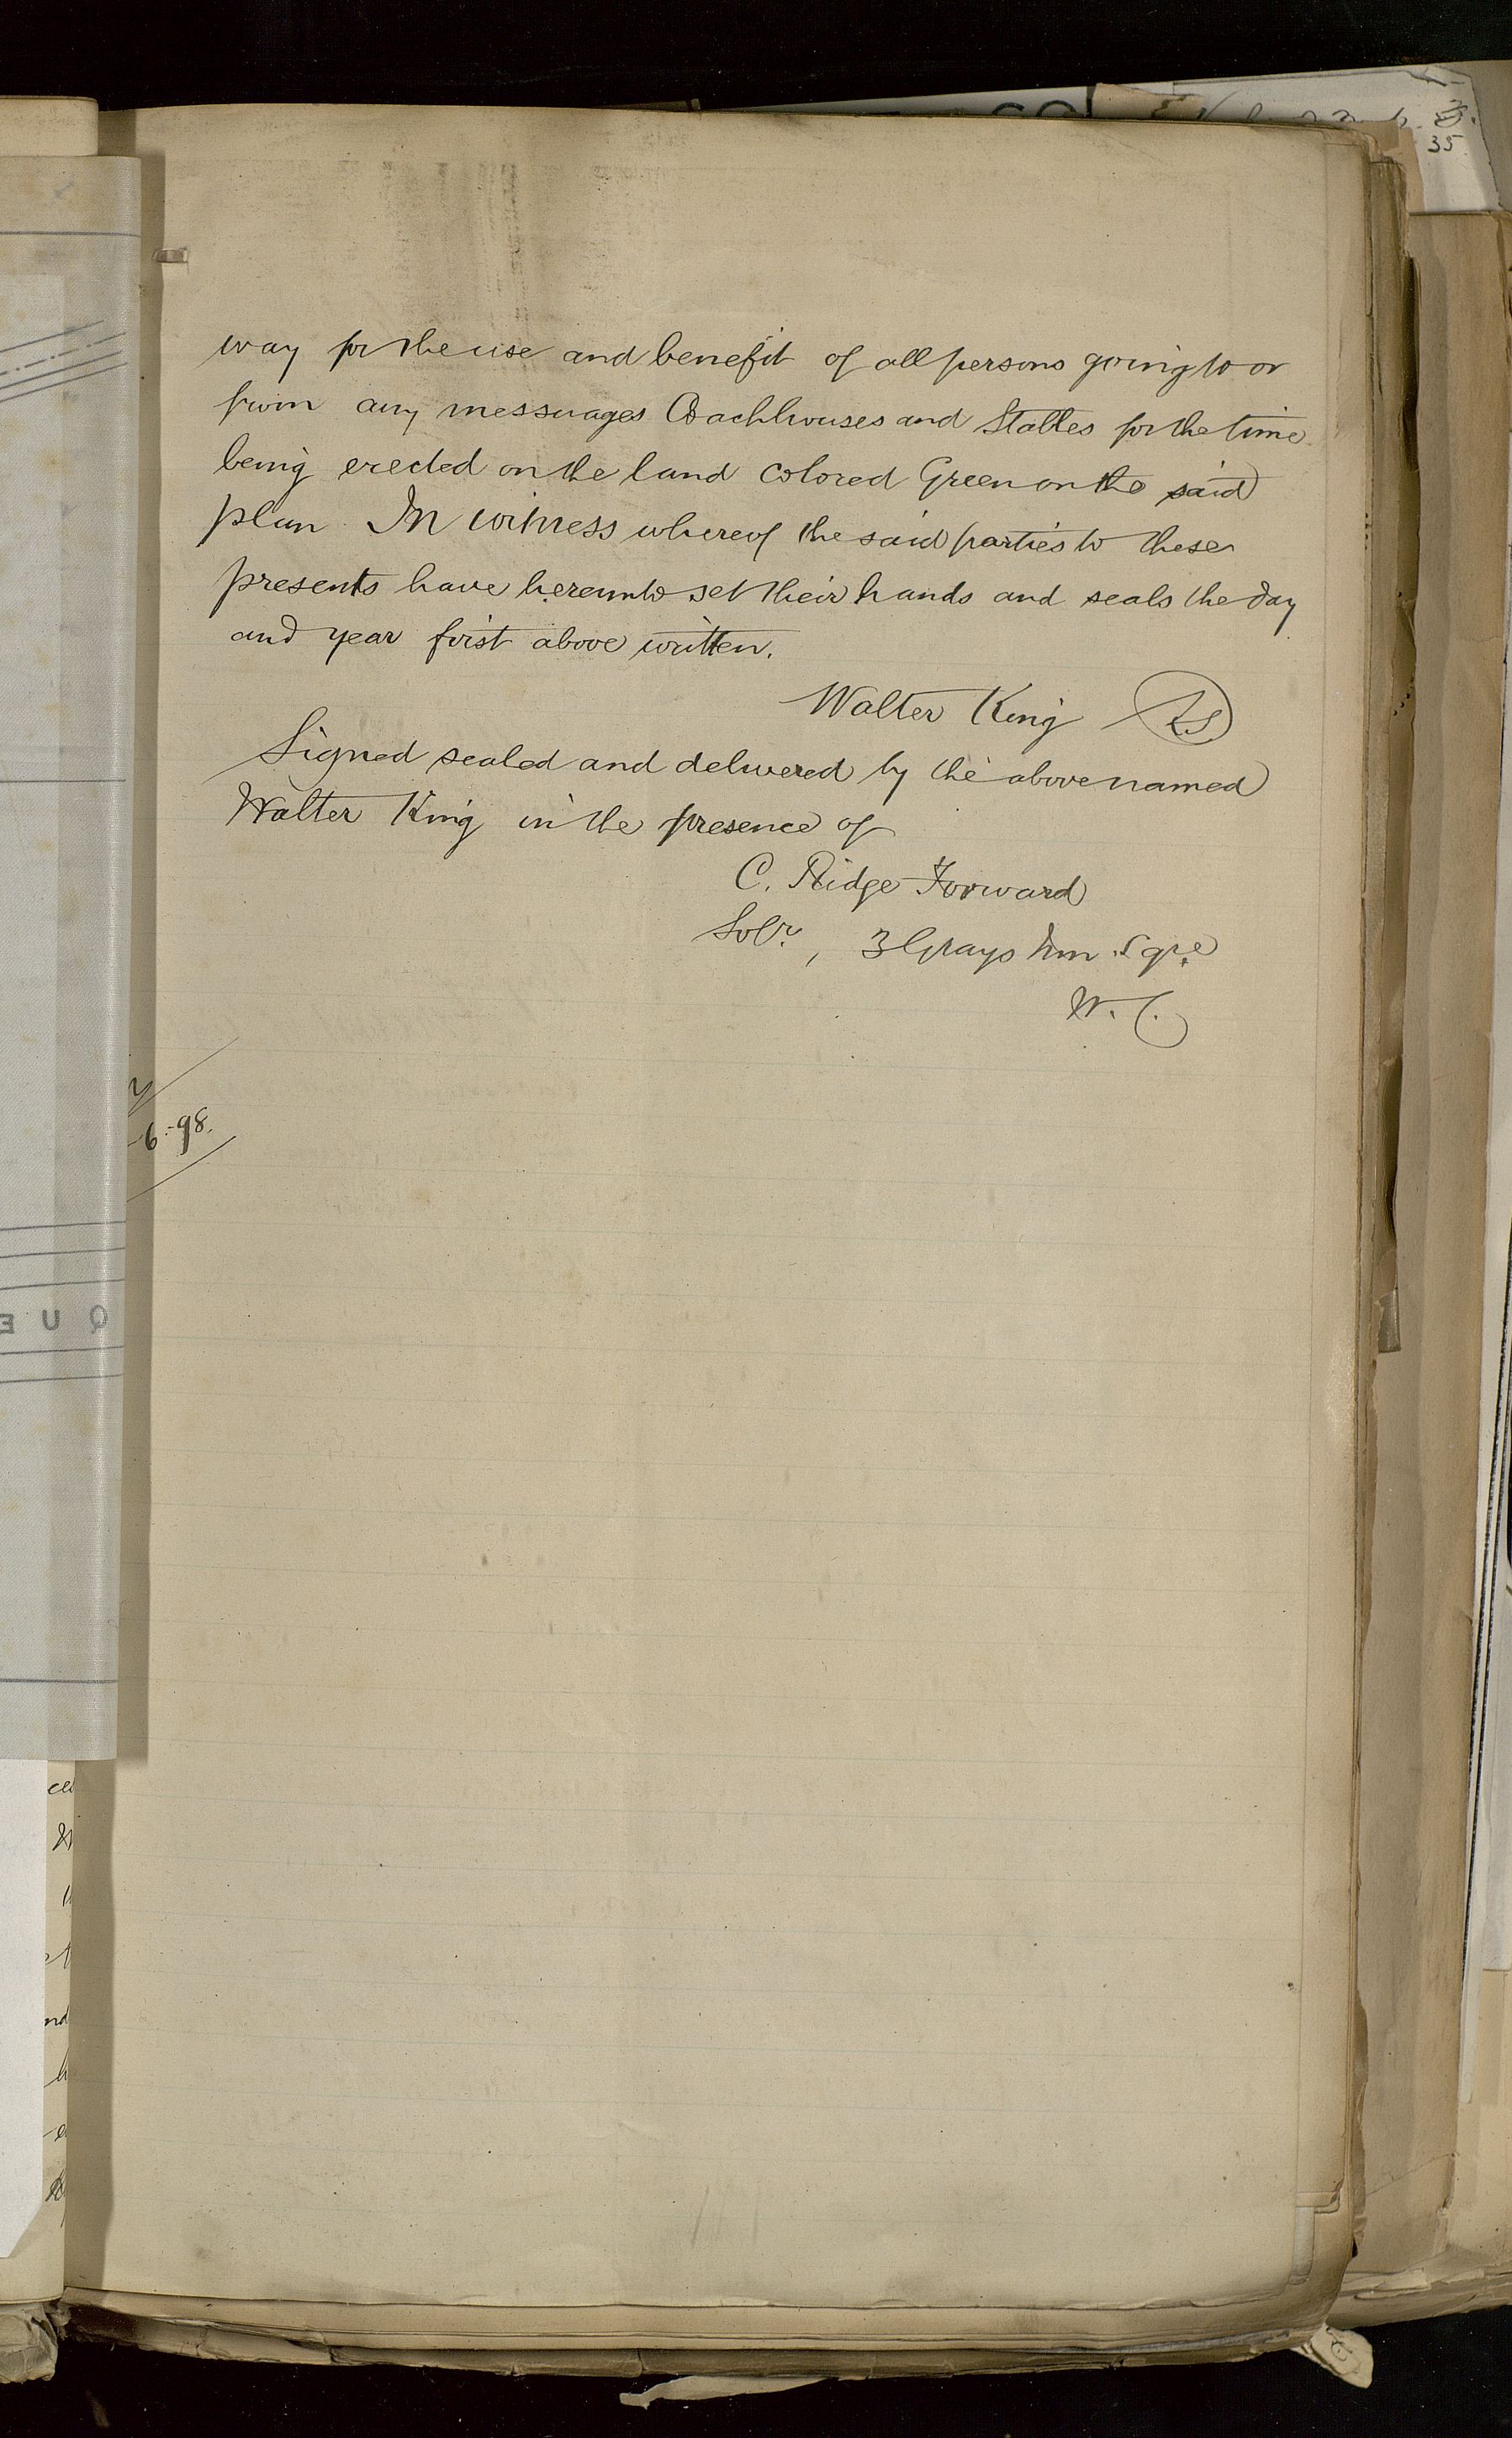 way for the use and benefit of all persons going to or
from any messuages Coachhouses and Stables for the time
being erected on the land colored Green on the said
plan In witness whereof the said parties to these
presents have hereunto set their hands and seals the day
and year first above written.
Walter King LS
Signed sealed and delivered by the above named
Walter King in the presence of
C. Ridge Forward
Solr., 3 Grays Inn Sqre.
W.C.
6-98.
QUE
35